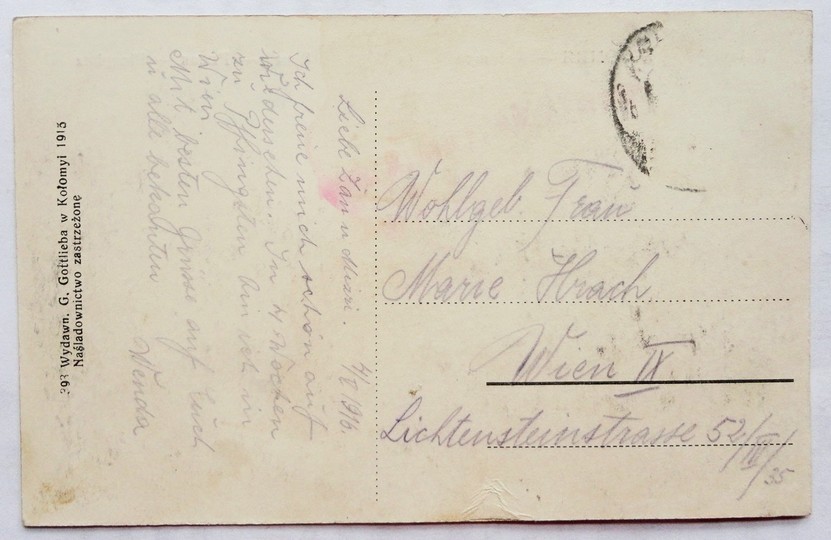 Liebe Zan u Mizi. 4/V 1916.
Ich freue mich schon auf
wiedersehen. In 4 Wochen
zu Pfingsten bin ich in
Wien
Mit besten Grüsse auf Euch
u alle bekannten
Wenda
Wohlgeb. Frau
Marie Hrach
Wien IX
Lichtensteinstrasse 52/III/35
393 Wydawn. G. Gottlieba w Kołomyi 1915
Naśladownictwo zastrzeżone